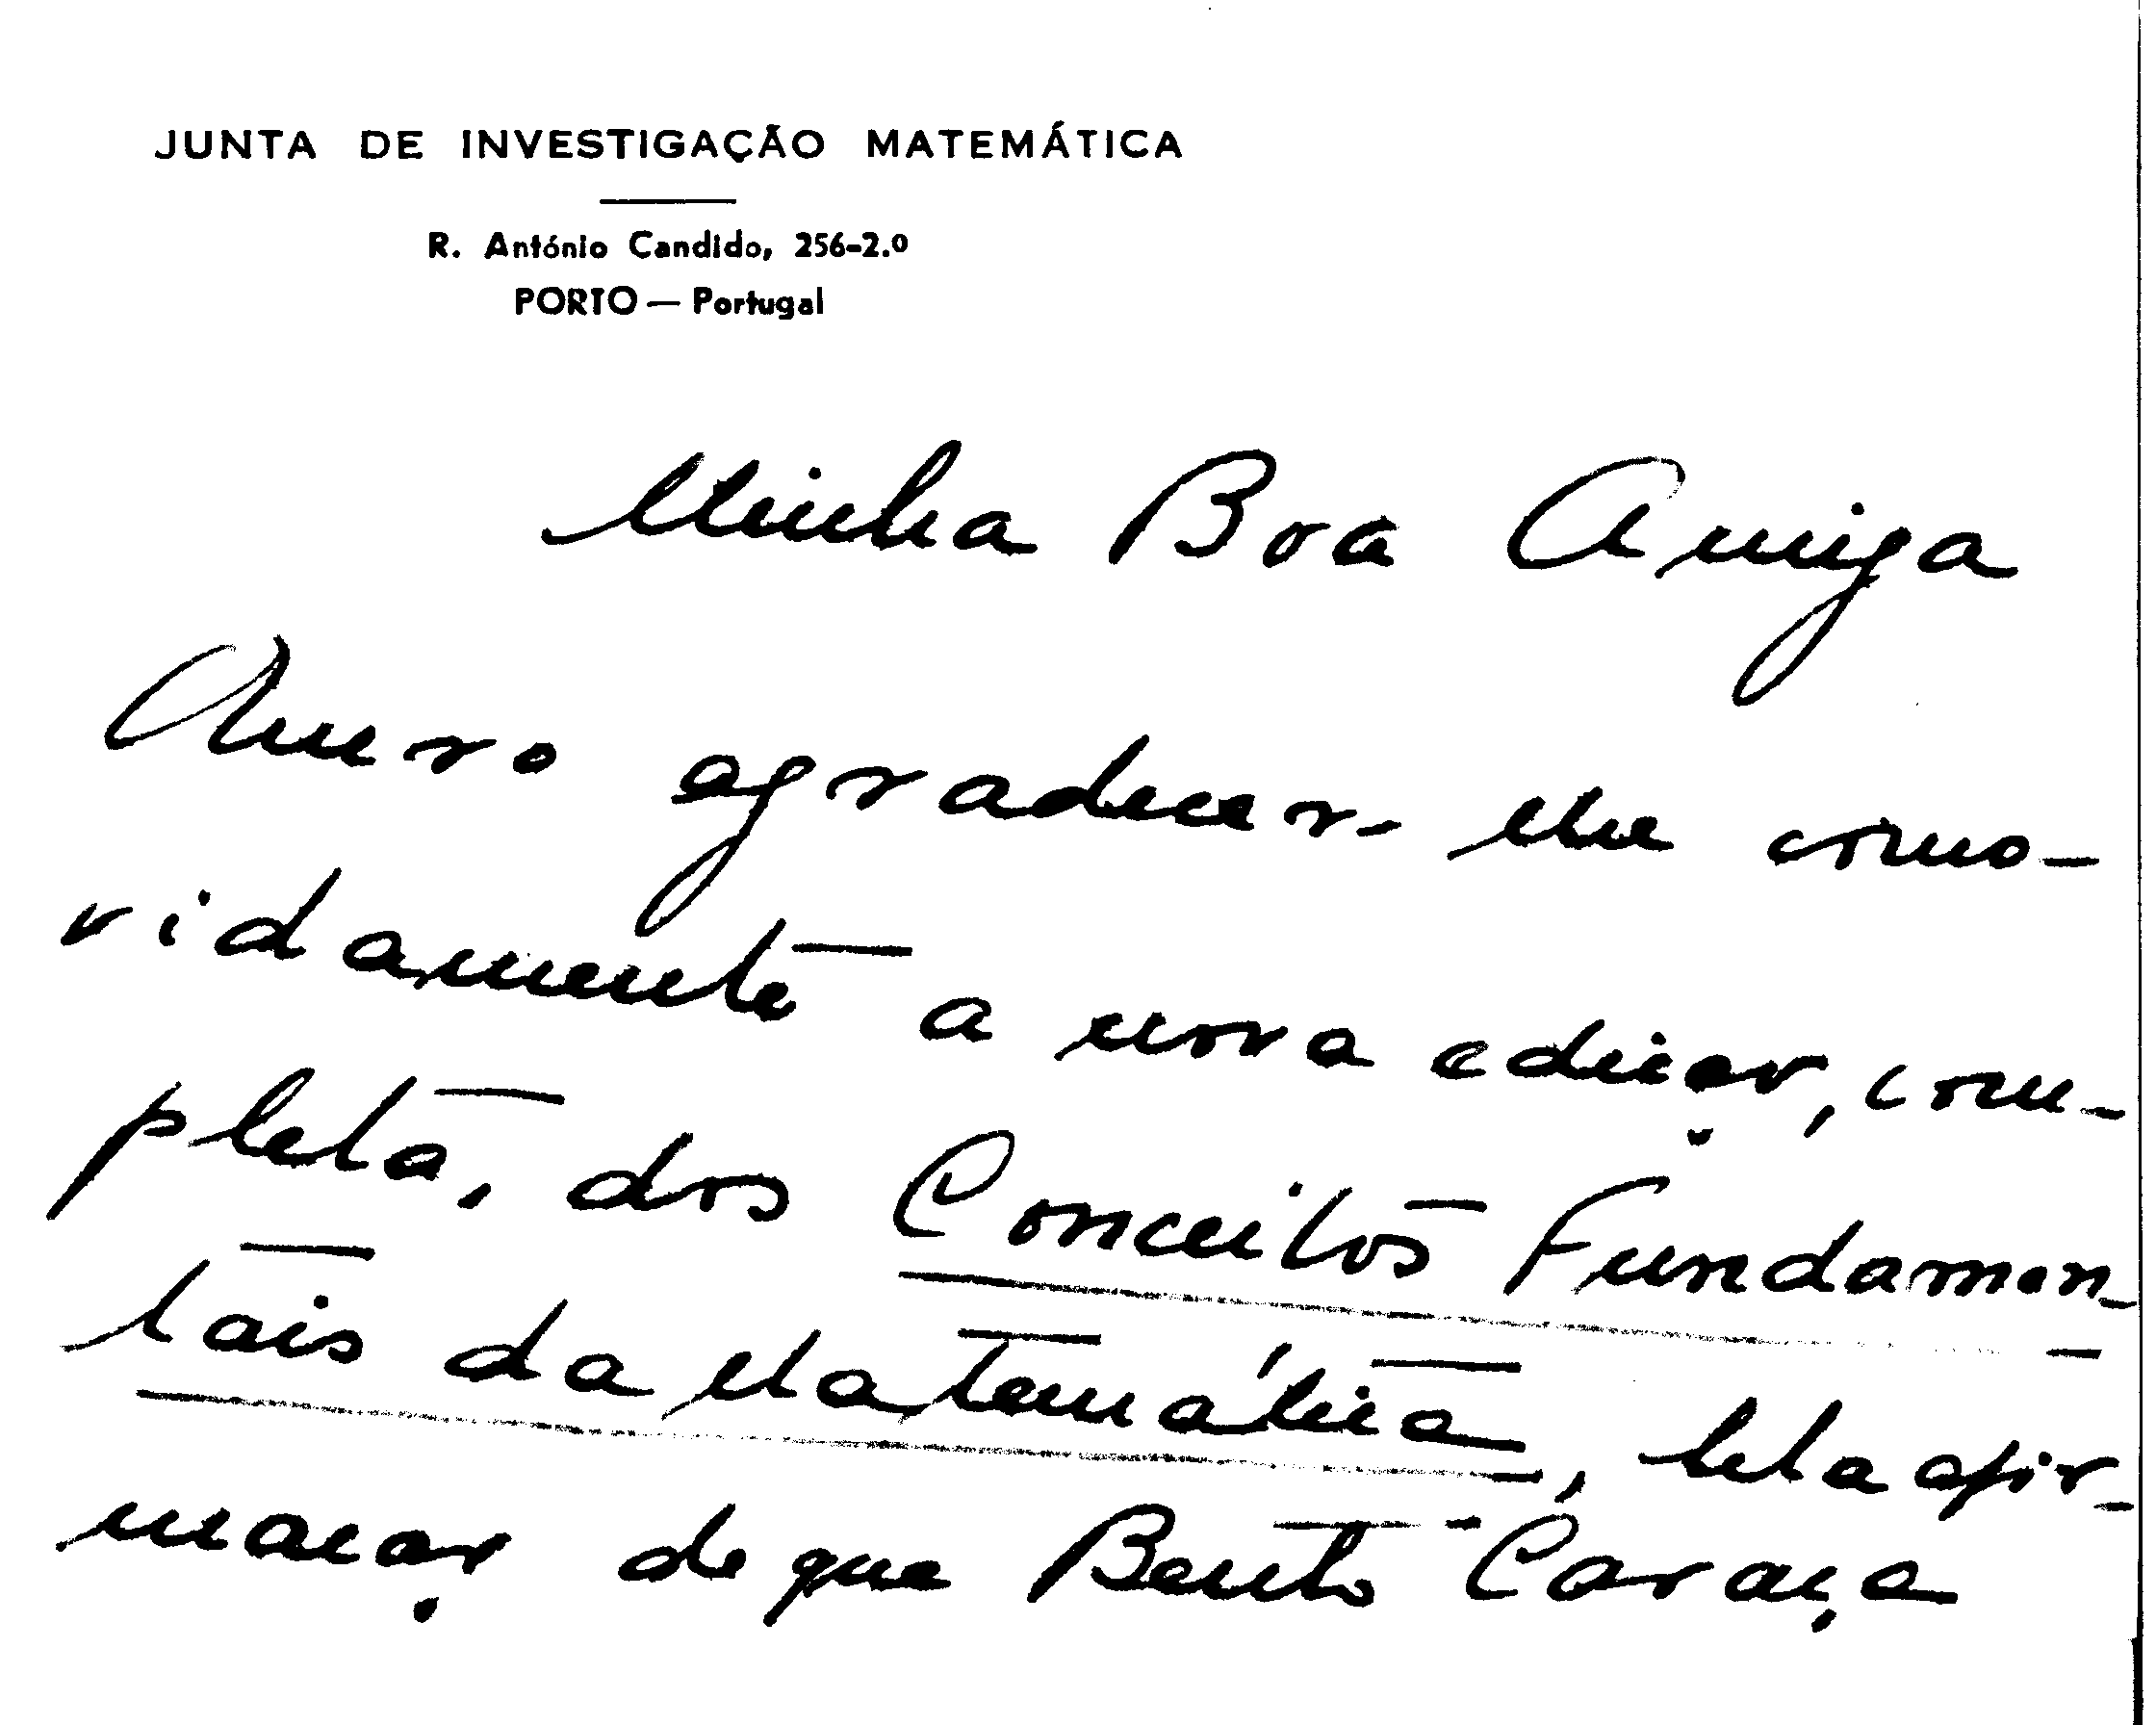 JUNTA DE INVESTIGAÇÃO MATEMÁTICA
R. António Candido, 256-2.º
PORTO — Portugal
Minha Boa Amiga
Quero agradecer-lhe como-
vidamente a nova edição, com-
pleta, dos Conceitos Fundamen-
tais da Matemática, bela afir-
mação de que Bento Caraça